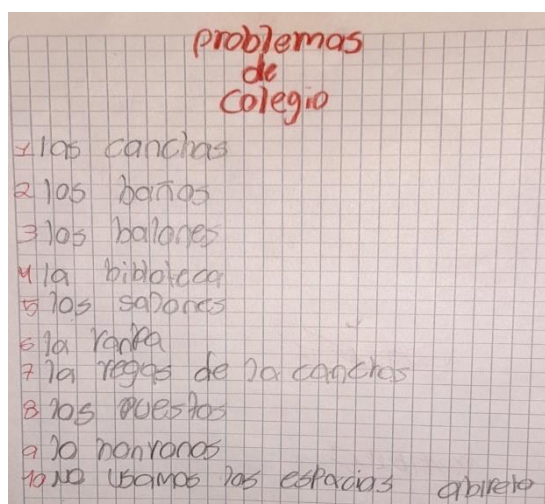 problemas
de
colegio
1 las canchas
2 los baños
3 los balones
4 la
5 los salones
6 la
7 la regas de la canchas
8 los puestos
9 lo
10 NO usamos los espacias abireto